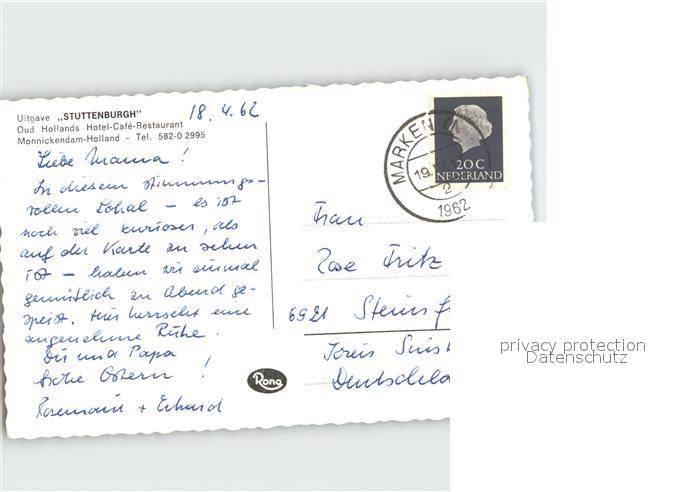 Uitgave „STUTTENBURGH"
Oud Hollands Hotel-Café-Restaurant
Monnickendam-Holland - Tel. 582-0 2995
18.4.62
Liebe Mama!
In diesem stimmungs-
vollen Lokal – es ist
noch viel kurioser, als
auf der Karte zu sehen
ist – haben wir einmal
gemütlich zu Abend ge-
speist. Hier herrscht eine
angenehme Ruhe.
Dir und Papa
frohe Ostern!
Rosemarie + Erhard
MARKEN
19
2
1962
20 C
NEDERLAND
Frau
Rose Fritz
6921
Kreis Sins
Deutschla
Rona
privacy protection
Datenschutz